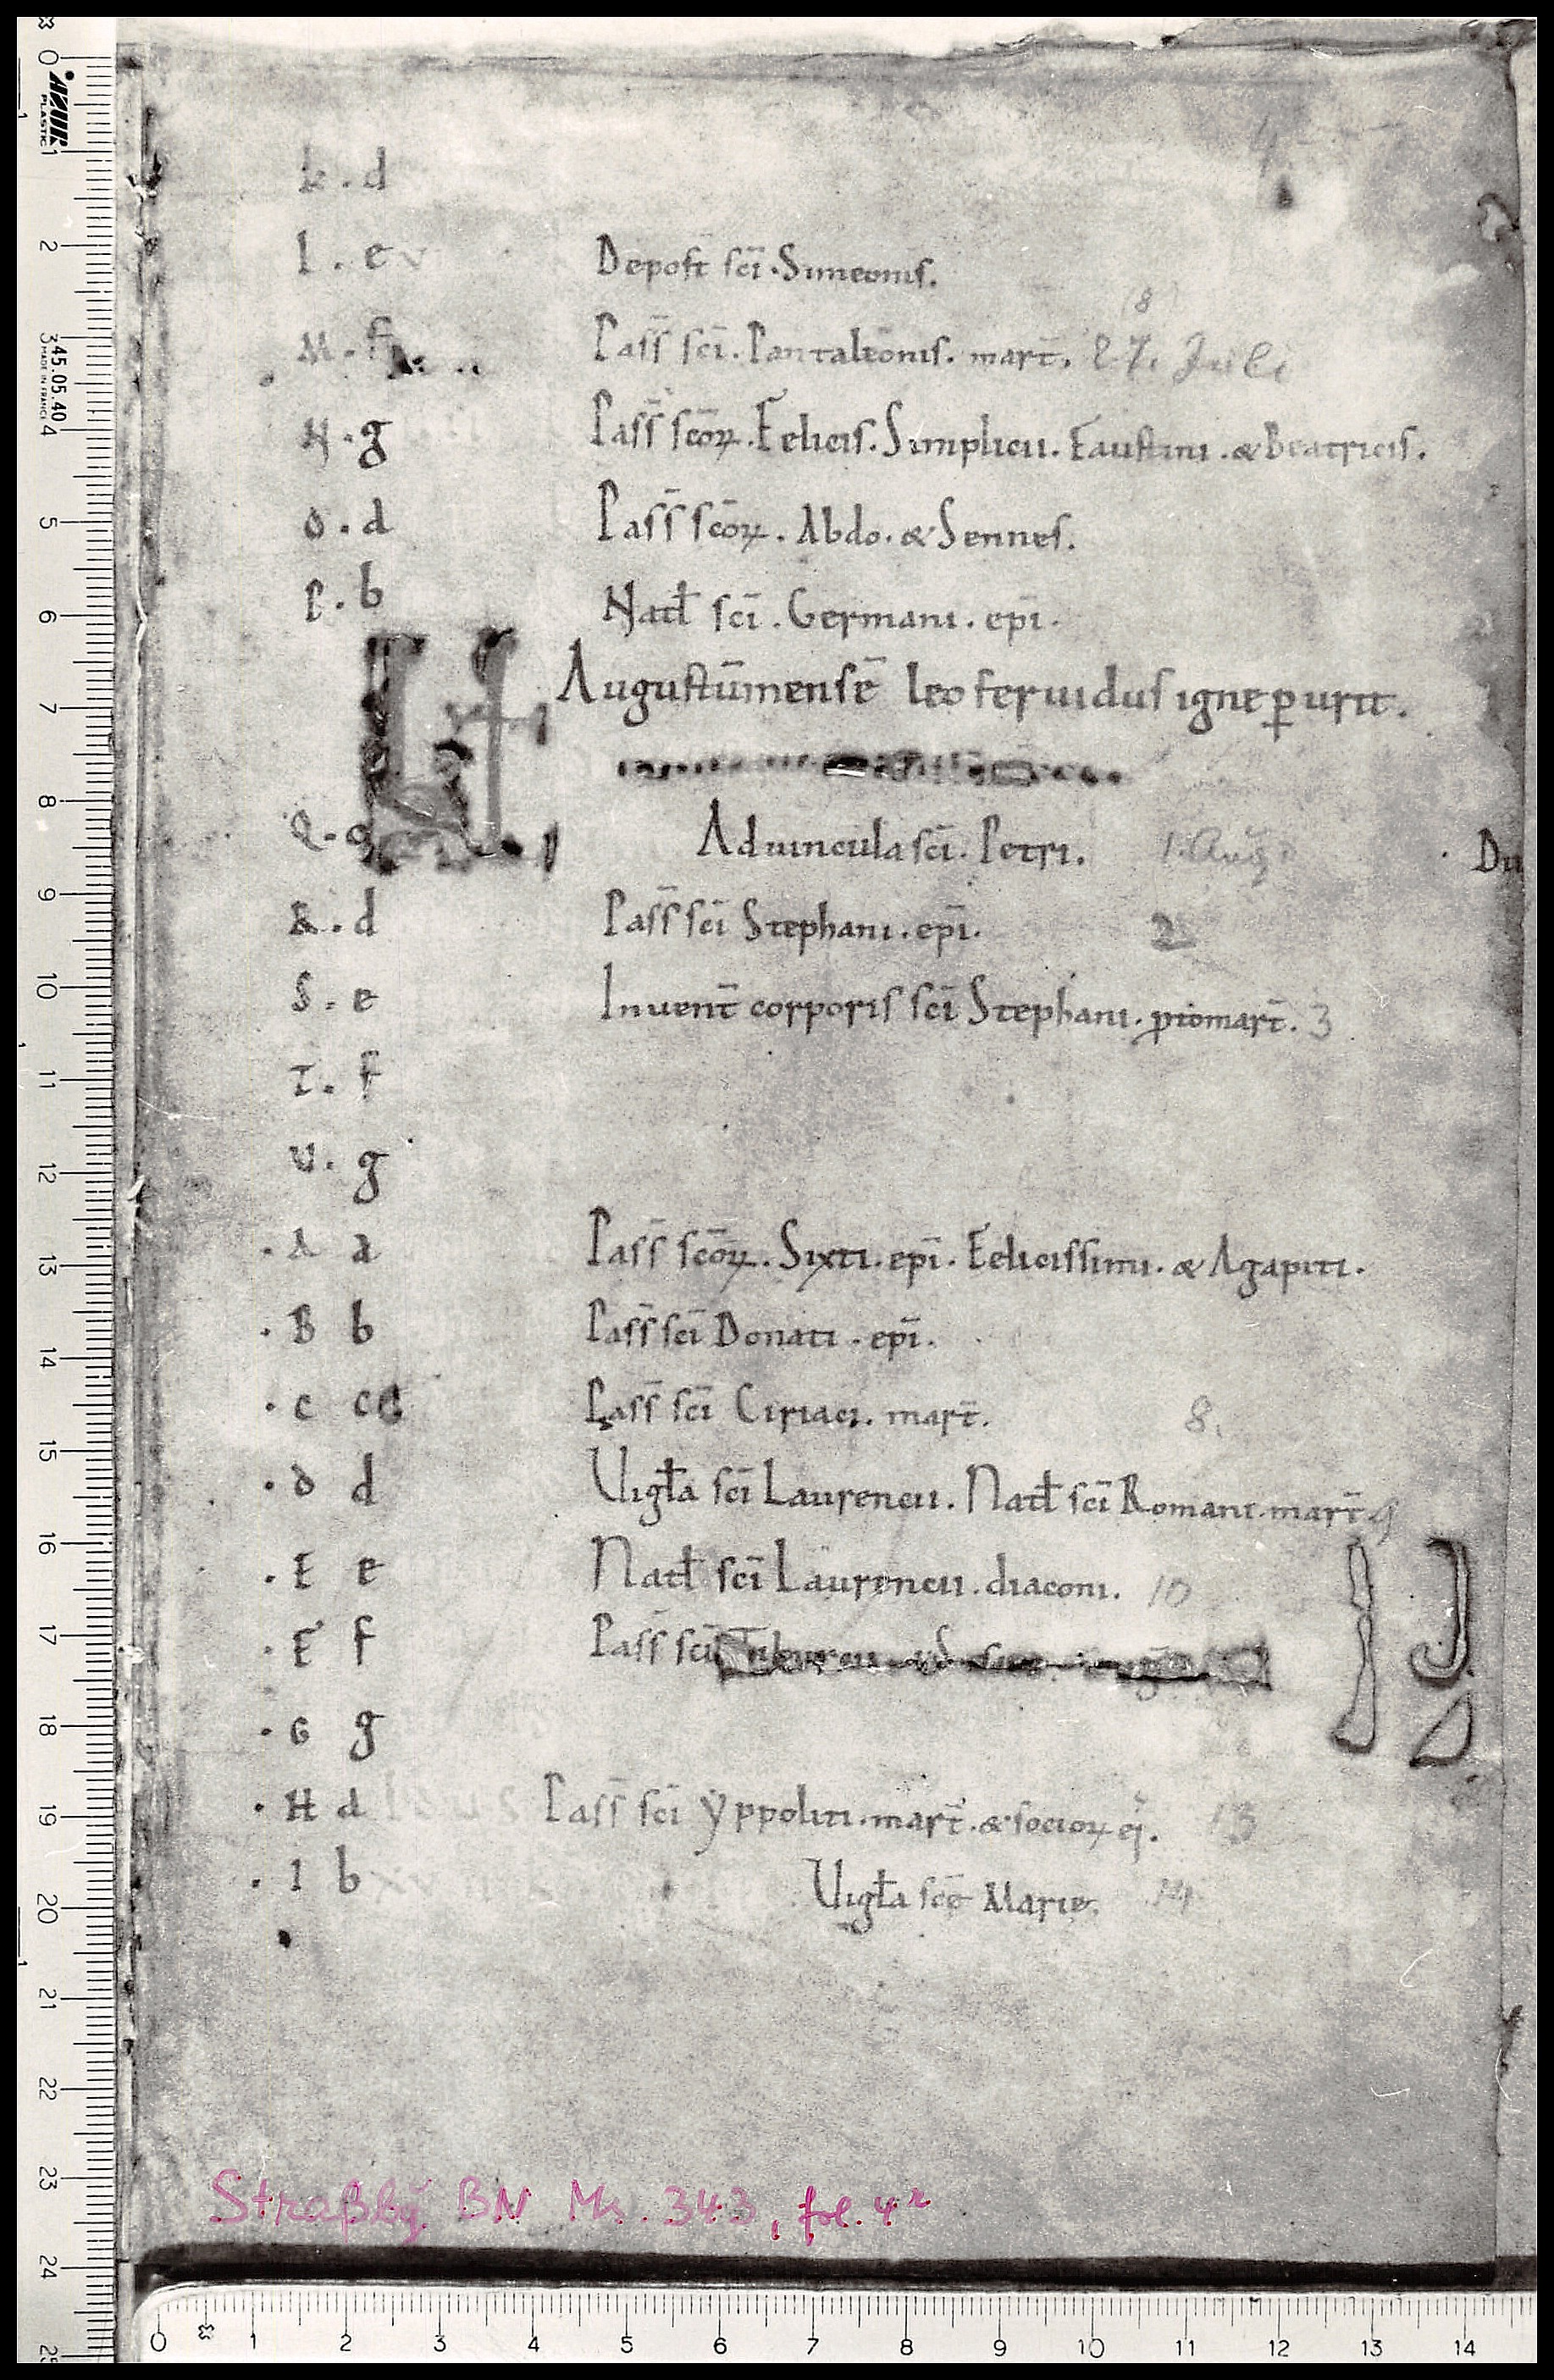 k . d
l . e v Depoſt̄ ſcī . Simeonis.
(8)
M . f Paſſ̄ ſcī . Pantaleonis . mart̄ . 27. Juli
N . g Paſſ̄ ſcōꝝ . Felicis . Simplicii . Fauſtini . & Beatricis .
O . d Paſſ̄ ſcōꝝ . Abdo . & Sennes .
P . b Natł ſcī . Germani . epī .
KL Auguſtūmenſē leo feruidus igne ꝑurit .
Q . Aduincula ſcī . Petri . 1. Aug. Du
R . d Paſſ̄ ſcī Stephani . epī . 2
S . e Inuent̄ corporis ſcī Stephani . ꝓtomart̄ . 3
T . f
U . g
. A a Paſſ̄ ſcōꝝ . Sixti . epī . Feliciſſimi . & Agapiti .
. B b Paſſ̄ ſcī Donati . epī .
. C c Paſſ̄ ſcī Ciriaci . mart̄ . 8.
. D d Uigła ſcī Laurencii . Natł ſcī Romani . mart̄ 9
. E e Natł ſcī Laurencii . diaconi . 10
. F f Paſſ̄ ſcī Tiburcii
. G g
. H d Paſſ̄ ſcī Yppoliti . mart̄ . & ſocioꝝ ej̄ . 13
. I b Uigła ſcę Marię . 14
Straßbg. BN Ms. 343, fol. 4r
AZUR
PLASTIC
345.05.40
MADE IN FRANCE
0
1
2
3
4
5
6
7
8
9
10
11
12
13
14
15
16
17
18
19
20
21
22
23
24
25
0 1 2 3 4 5 6 7 8 9 10 11 12 13 14